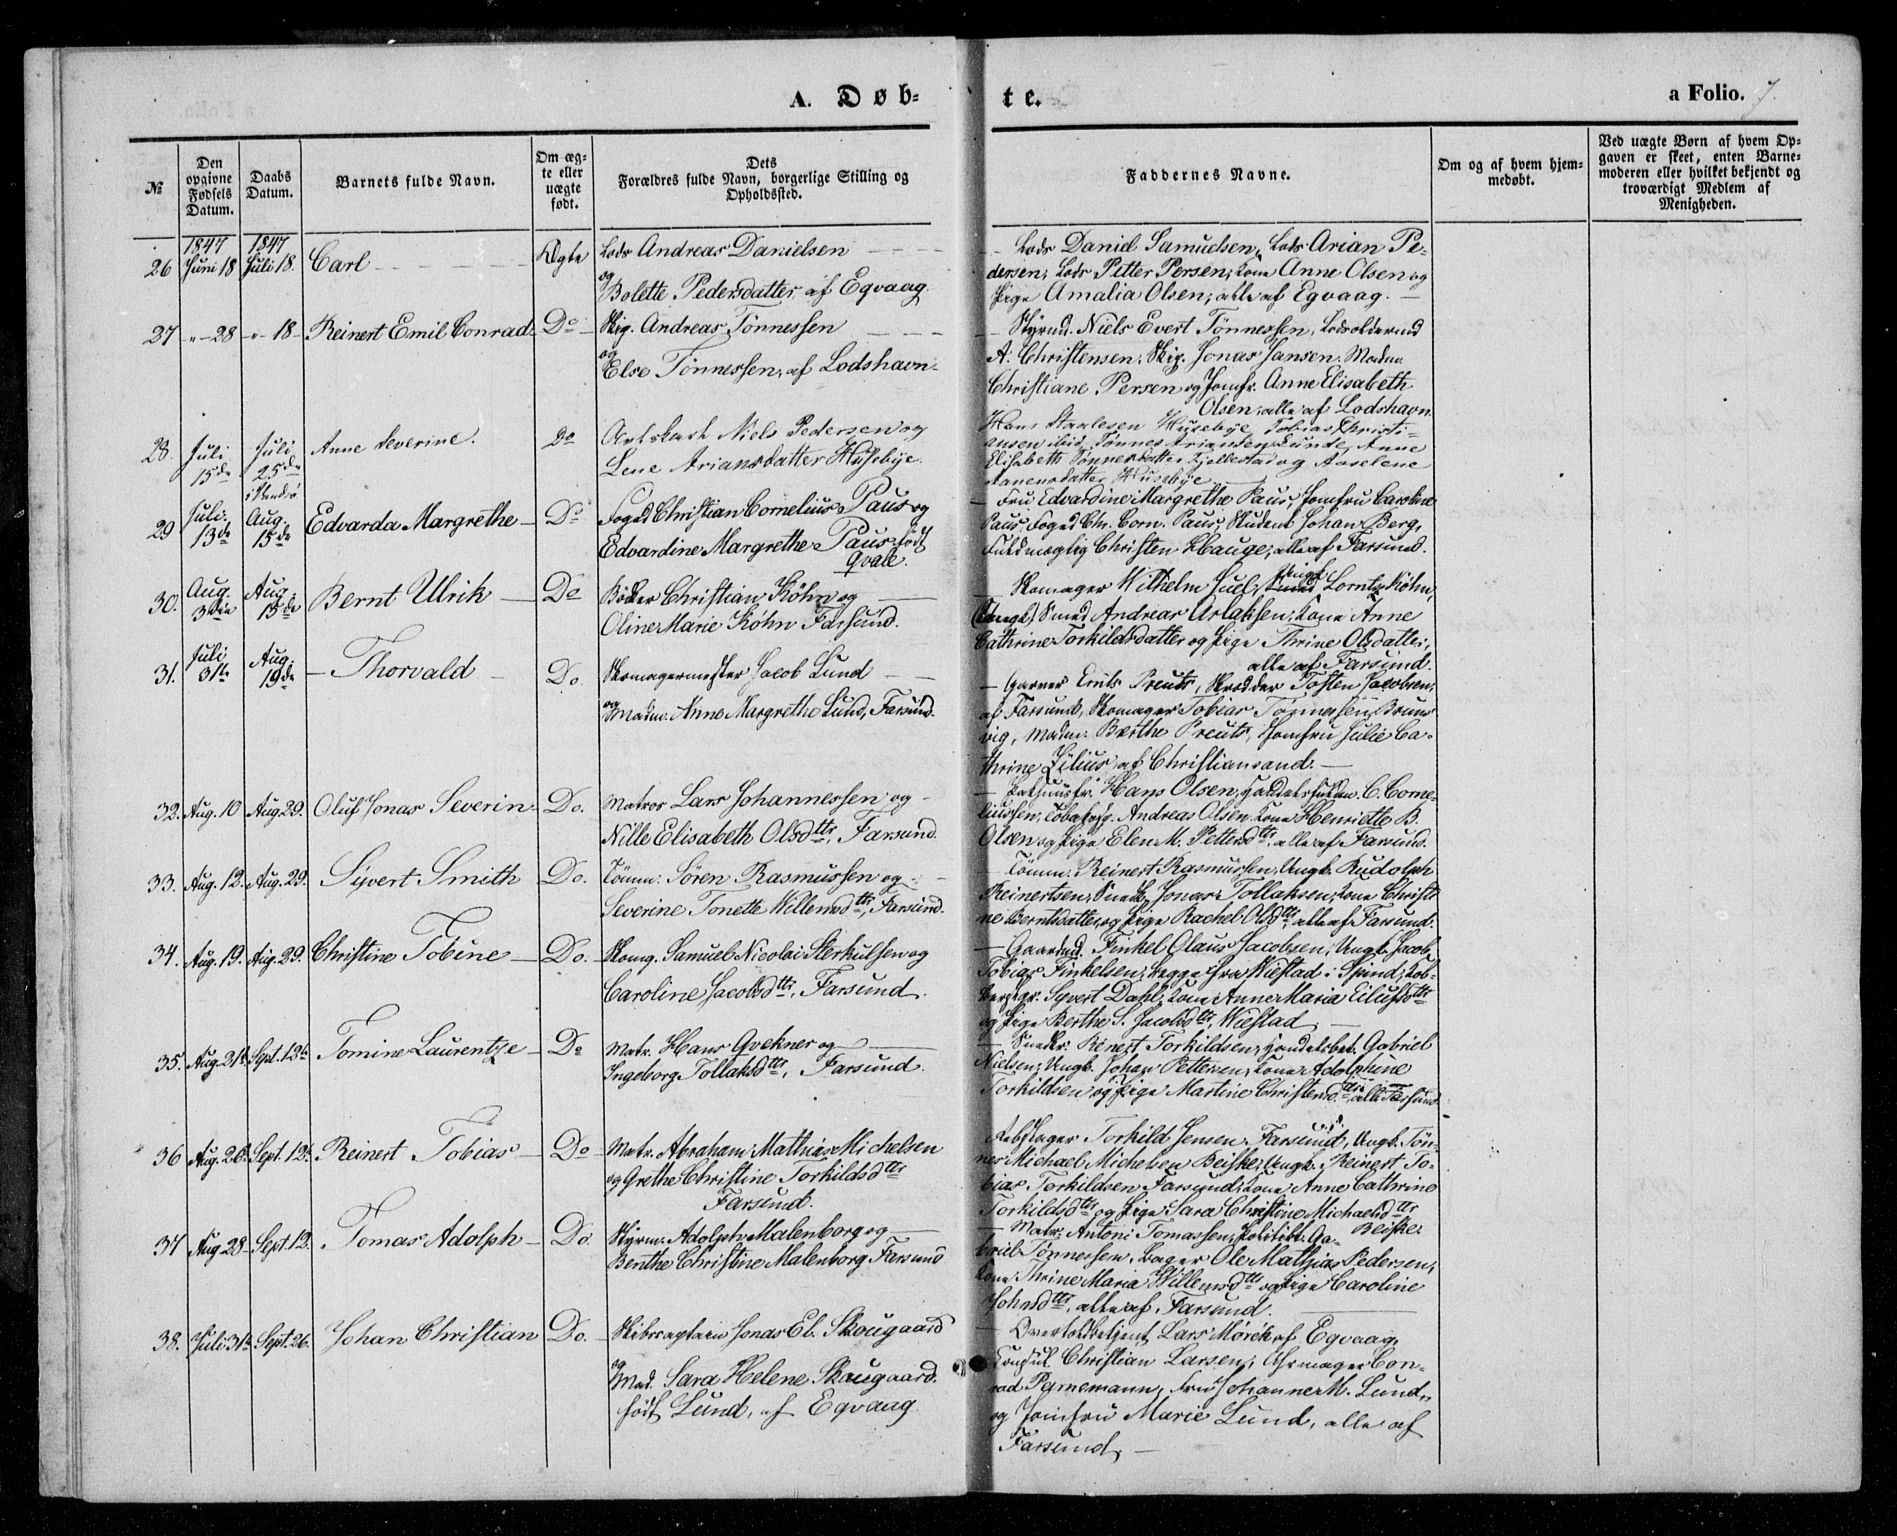 A. Døb-
te.
a Folio. 7.
№
Den opgivne Fødsels Datum.
Daabs Datum.
Barnets fulde Navn.
Om æg-te eller uægte født.
Dets Forældres fulde Navn, borgerlige Stilling og Opholdssted.
Faddernes Navne.
Om og af hvem hjem-medøbt.
Ved uægte Børn af hvem Op-gaven er skeet, enten Barne-moderen eller hvilket bekjendt og troværdigt Medlem af Menigheden.
1847 1847
26 Juni 18 Juli 18. Carl Ægte Lods Andreas Danielsen
og
Bolette Pedersdatter af Egvaag.
Lods Daniel Samuelsen, Lods Arian Pe-
dersen, Lods Petter Persen, Kone Anne Olsen og
Pige Amalia Olsen, alle af Egvaag.
27 " 28 " 18 Reinert Emil Conrad Do Skip. Andreas Tønnessen
og
Else Tønnessen, af Lodshavn
Styrmd. Niels Evert Tønnessen, Lodsoldermd
A. Christensen, Skip. Jonas Jansen. Madm.
Christiane Persen og Jomfr. Anne Elisabeth
Olsen, alle af Lodshavn
28. Juli 15de Juli 25de Anne Severine. Do Niels Pedersen og
Lene Ariansdatter Husebye.
Hans Staalesen Husebye Tobias Christi-
ansen ibid, Tønnes Ariansen Lunde, Anne
Elisabeth Tønnesdatter Fjellestad og Aaselene
Aanensdatter Husebye
29 Juli 13de Aug. 15de Edvarda Margrethe Do Foged Christian Cornelius Paus og
Edvardine Margrethe Paus født
Qvale.
Fru Edvardine Margrethe Paus, Jomfru Caroline
Paus, Foged Chr. Corn. Paus, Student Johan Berg,
Fuldmægtig Christen Hauge, alle af Farsund.
30. Aug. 3die Aug. 15de Bernt Ulrik Do Bødker Christian Køhn og
Oline Marie Køhn Farsund.
Skomager Wilhelm Juel, Lorntz Køhn,
Smed Andreas Aslaksen, Kone Anne
Cathrine Torkildsdatter og Pige Thrine Olsdatter,
alle af Farsund.
31. Juli 31te Aug. 19de Thorvald Do. Skomagermester Jacob Lund
og
Madm. Anne Margrethe Lund, Farsund.
Garver Preuts, Skrædder Tosten Jacobsen,
af Farsund, Skomager Tobias Tønnessen Bruns
vig, Madm. Berthe Preuts, Jomfru Julie Ca-
thrine Zilius af Christiansand.
32. Aug. 10 Aug. 29. Oluf Jonas Severin Do. Matros Lars Johannessen og
Nille Elisabeth Olsdttr, Farsund.
Hans Olsen, C. Corne-
liussen, Andreas Olsen, Kone Henriette B.
Olsen og Pige Elen M. Pettersdttr, alle af Farsund.
33. Aug. 12. Aug. 29. Syvert Smith Do. Tømm. Søren Rasmussen og
Severine Tonette Willemsdttr, Farsund.
Tømm. Reinert Rasmussen, Ungk. Rudolph
Reinertsen, Smed Jonas Tollaksen, Kone Christi
ne Berntsdatter og Pige Rachel Olsdttr, alle af Farsund.
34. Aug. 19. Aug. 29. Christine Tobine Do. Skomg. Samuel Nicolai Sterkulsen og
Caroline Jacobsdttr, Farsund.
Gaardmd. Finkel Olaus Jacobsen, Ungk. Jacob
Tobias Finkelsen, begge fra Wiestad i Spind, Kob-
berslgr. Syvert Dahl, Kone Anne Maria Eilufsdttr
og Pige Berthe S. Jacobsdttr, Wiestad
35. Aug. 21de Sept. 12te Tomine Laurentze Do Matr. Hans Qvekner og
Ingeborg Tollaksdttr, Farsund.
Snedkr. Reinert Torkildsen, Handelsbet. Gabriel
Nielsen, Ungk. Johan Pettersen, Kone Adolphine
Torkildsen og Pige Martine Christensdttr alle Farsund
36 Aug. 26 Sept. 12te Reinert Tobias Do Matr. Abraham Mathias Michelsen
og Grethe Christine Torkildsdttr
Farsund.
Rebslager Torkild Jensen, Farsund, Ungk. Tøn-
nes Michael Michelsen Beiske, Ungk. Reinert To-
bias Torkildsen Farsund, Kone Anne Cathrine
Torkildsdttr og Pige Sara Christine Michaelsdttr
Beiske.
37 Aug 28 Sept. 12. Tomas Adolph Do. Styrm. Adolph Malenborg og
Benthe Christine Malenborg Farsund
Matr. Antoni Tomassen, Politibt. Ga-
briel Tønnessen, Bager Ole Mathias Pedersen,
Kone Thrine Maria Willemsdttr og Pige Caroline
Johnsdttr, alle af Farsund.
38. Juli 31te Sept. 26. Johan Christian Do. Skibscaptain Jonas El. Skougaard
og
Mad. Sara Helene Skougaard.
født Lund, af Egvaag
Overtoldbetjent Lars Mørch af Egvaag,
Konsul Christian Larsen, Uhrmager Con-
rad Parnemann, Fru Johanne M. Lund,
og Jomfru Marie Lund, alle af
Farsund,